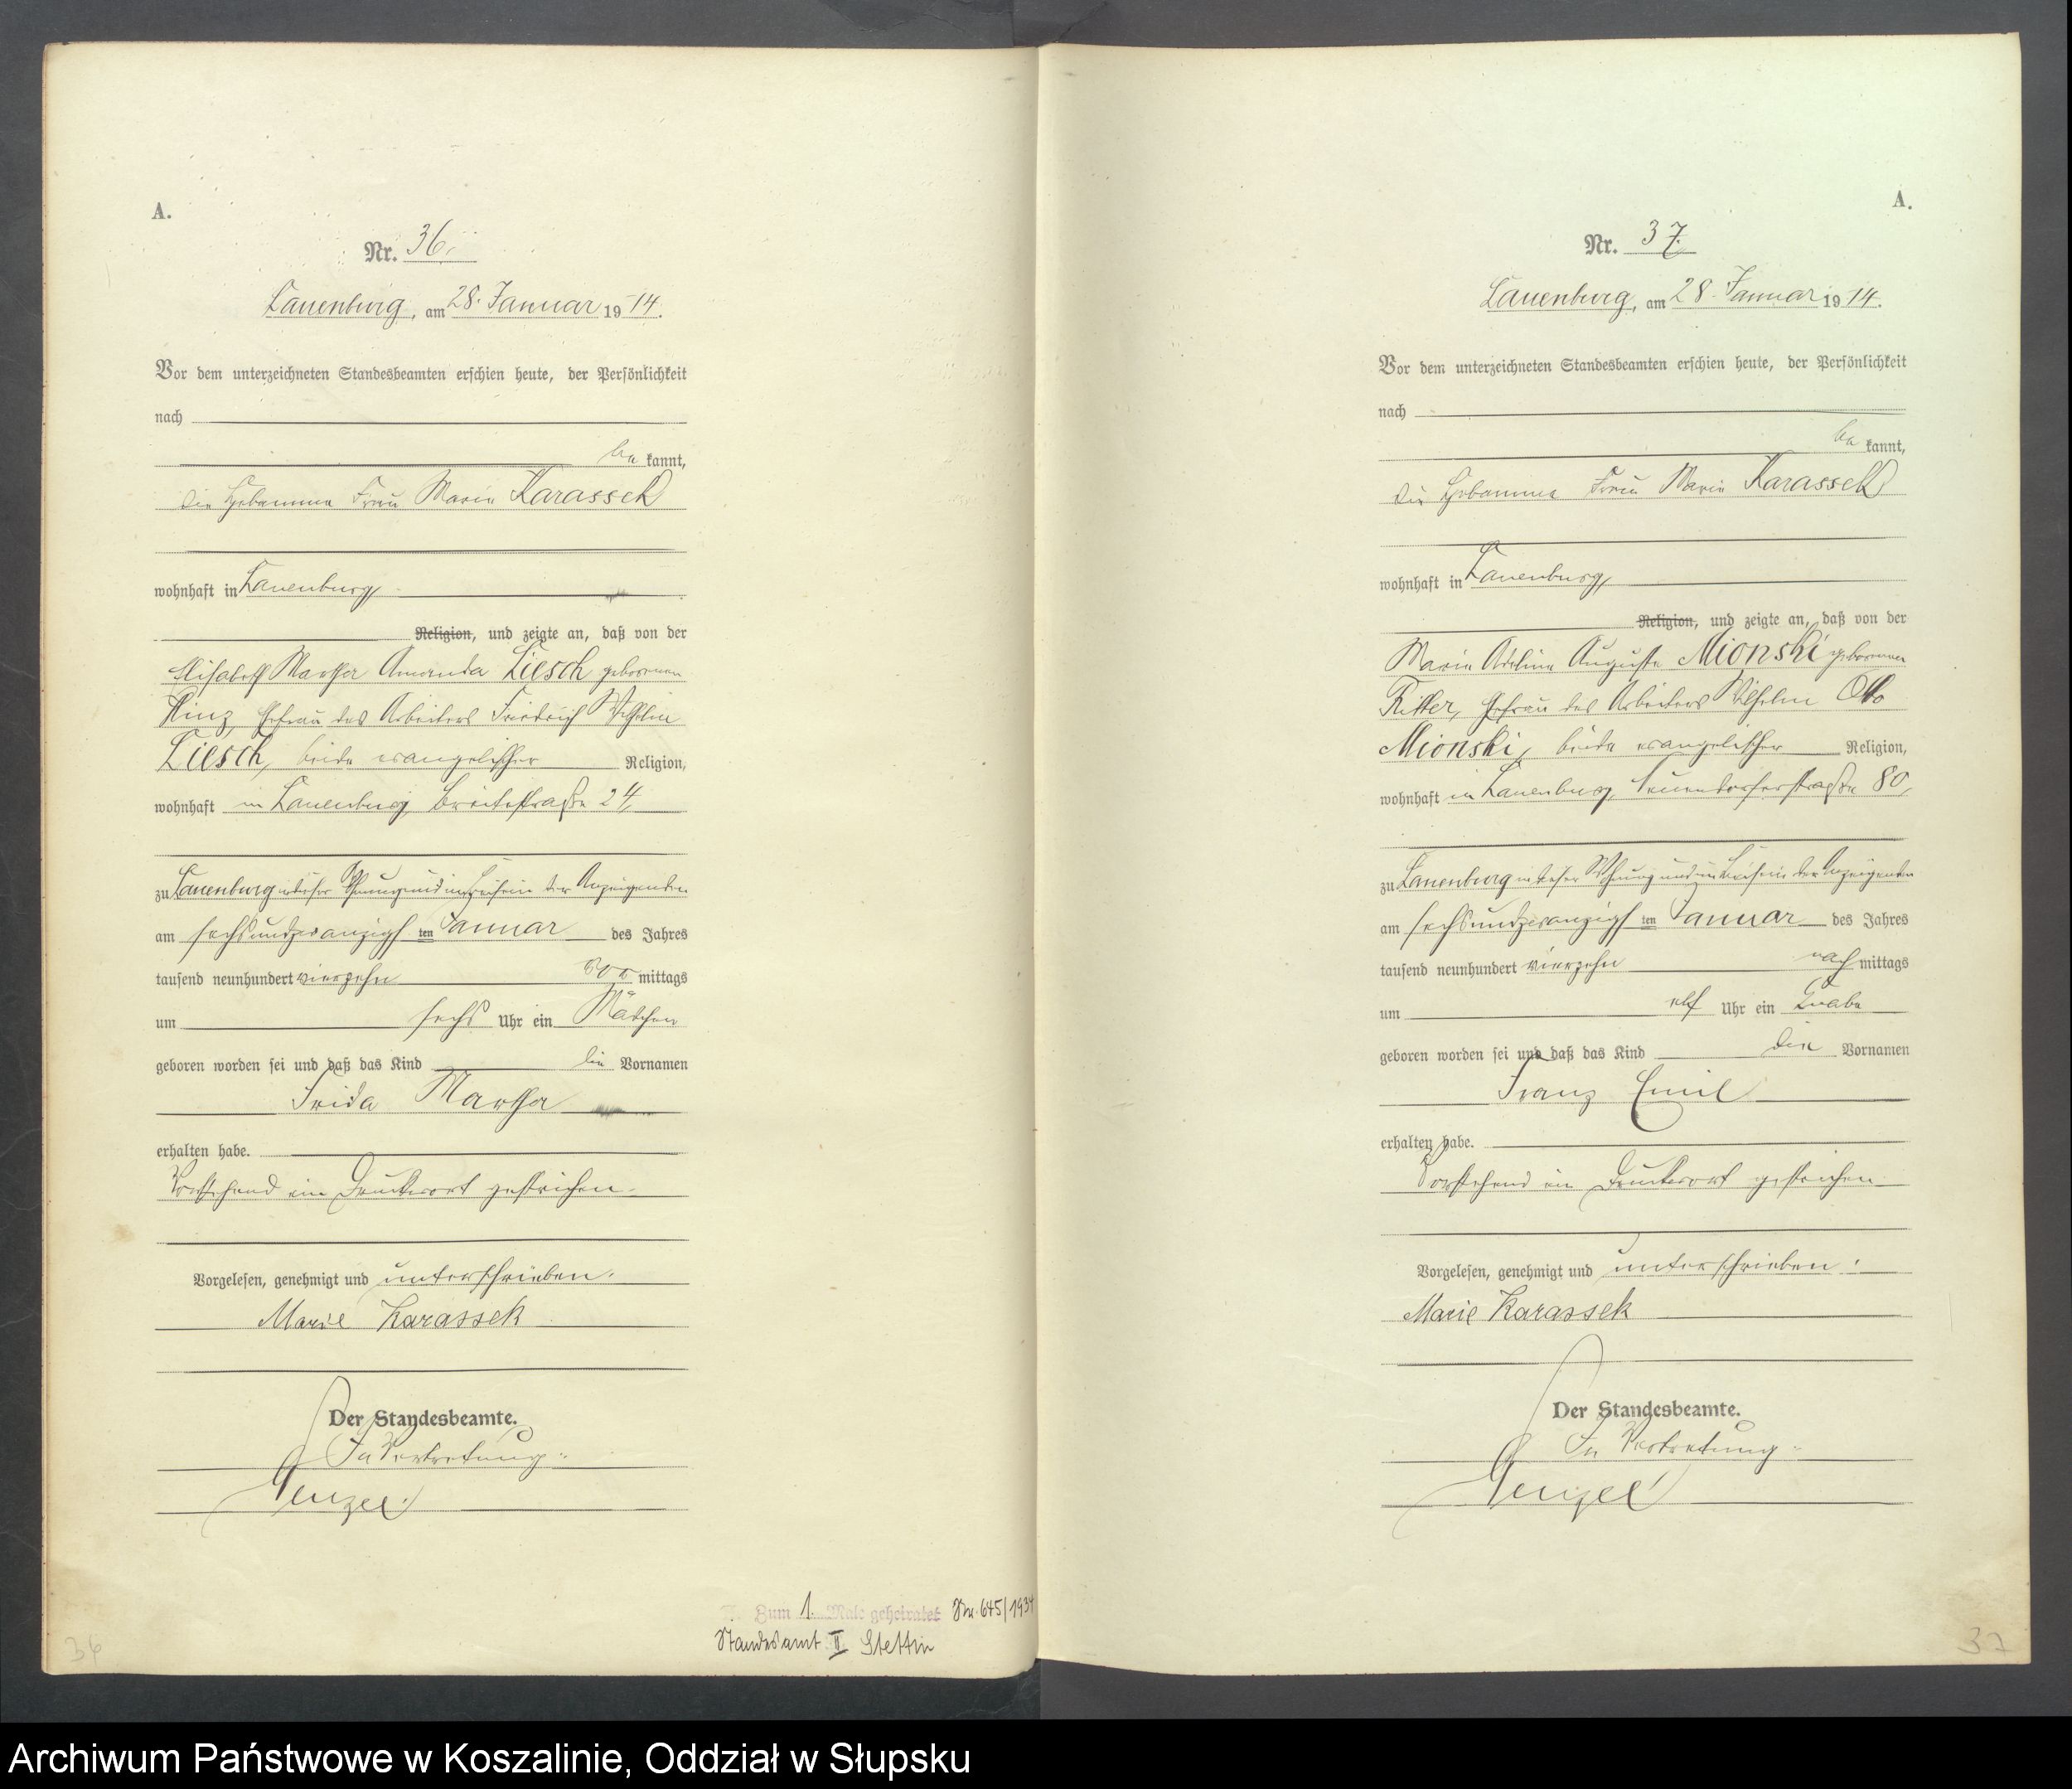 A.
Nr. 36.
Lauenburg, am 28. Januar 1914.
Vor dem unterzeichneten Standesbeamten erschien heute, der Persönlichkeit
nach
be kannt,
die Hebamme Frau Marie Karasseck
wohnhaft in Lauenburg,
Religion, und zeigte an, daß von der
Elisabeth Martha Amanda Liesch geborenen
Hinz, Ehefrau des Arbeiters Friedrich Wilhelm
Liesch, beide evangelischer Religion,
wohnhaft in Lauenburg, Breitestraße 24,
zu Lauenburg in dieser Wohnung und im Beisein der Anzeigenden
am sechsundzwanzigsten Januar des Jahres
tausend neunhundert vierzehn vor mittags
um sechs Uhr ein Mädchen
geboren worden sei und daß das Kind die Vornamen
Frida Martha
erhalten habe.
Vorstehend ein Druckwort gestrichen.
Vorgelesen, genehmigt und unterschrieben.
Marie Karassek
Der Standesbeamte.
In Vertretung:
Zum 1. Male geheiratet Nr. 645/1934
Standesamt II Stettin
36
A.
Nr. 37.
Lauenburg, am 28. Januar 1914.
Vor dem unterzeichneten Standesbeamten erschien heute, der Persönlichkeit
nach
be kannt,
die Hebamme Frau Marie Karasseck
wohnhaft in Lauenburg,
Religion, und zeigte an, daß von der
Marie Adeline Auguste Mionski geborenen
Ritter, Ehefrau des Arbeiters Wilhelm Otto
Mionski, beide evangelischer Religion,
wohnhaft in Lauenburg, Neuendorferstraße 80,
zu Lauenburg in dieser Wohnung und im Beisein der Anzeigenden
am sechsundzwanzigsten Januar des Jahres
tausend neunhundert vierzehn nach mittags
um elf Uhr ein Knabe
geboren worden sei und daß das Kind die Vornamen
Franz Emil
erhalten habe.
Vorstehend ein Druckwort gestrichen.
Vorgelesen, genehmigt und unterschrieben.
Marie Karassek
Der Standesbeamte.
In Vertretung:
37
Archiwum Państwowe w Koszalinie, Oddział w Słupsku